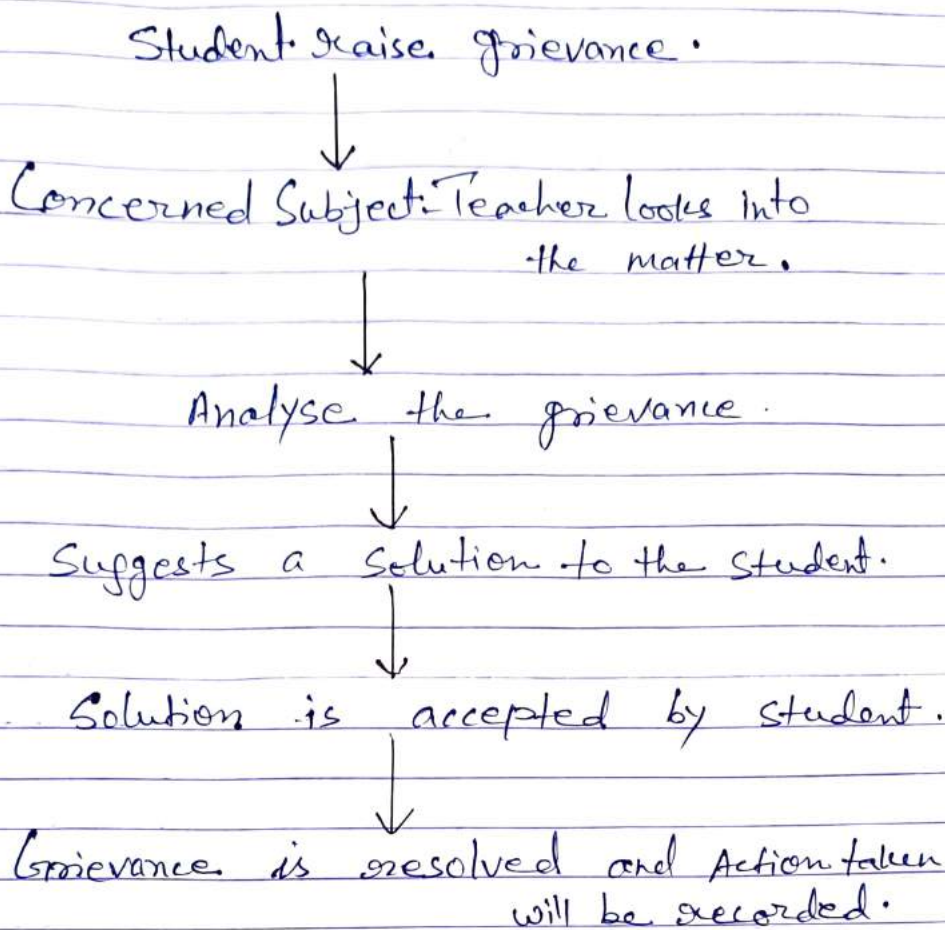 Student raise grievance.
Concerned Subject Teacher looks into
the matter.
Analyse the grievance.
Suggests a solution to the student.
Solution is accepted by student.
Grievance is resolved and Action taken
will be recorded.